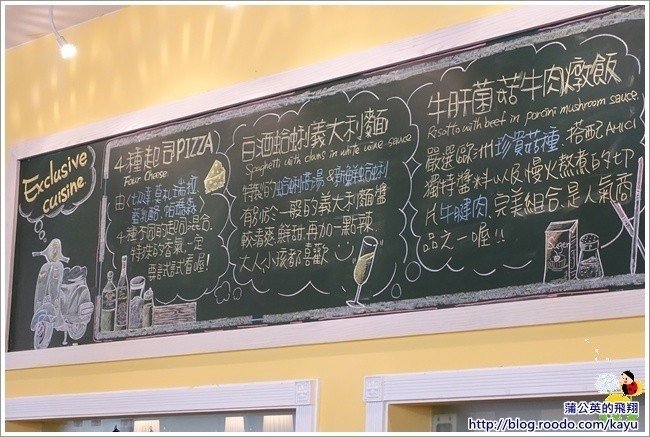 Exclusive
cuisine
4種起司PIZZA
Four Cheese
由(切達、莫札瑞拉、
藍乳酪、帕瑪森)
4種不同的起司混合,
特殊的香氣一定
要試試看喔!
白酒蛤蜊義大利麵
Spaghetti with clams in white wine sauce
特製的蛤蜊高湯&新鮮蛤蜊
有別於一般的義大利麵醬
較清爽、鮮甜,再加一點辣,
大人小孩都喜歡
牛肝菌菇牛肉燉飯
Risotto with beef in porcini mushroom sauce.
嚴選歐洲珍貴菇種,搭配AMICI
獨特醬料以及慢火熬煮的切
片牛腱肉,完美組合,是人氣商
品之一喔!!
蒲公英的飛翔
http://blog.roodo.com/kayu